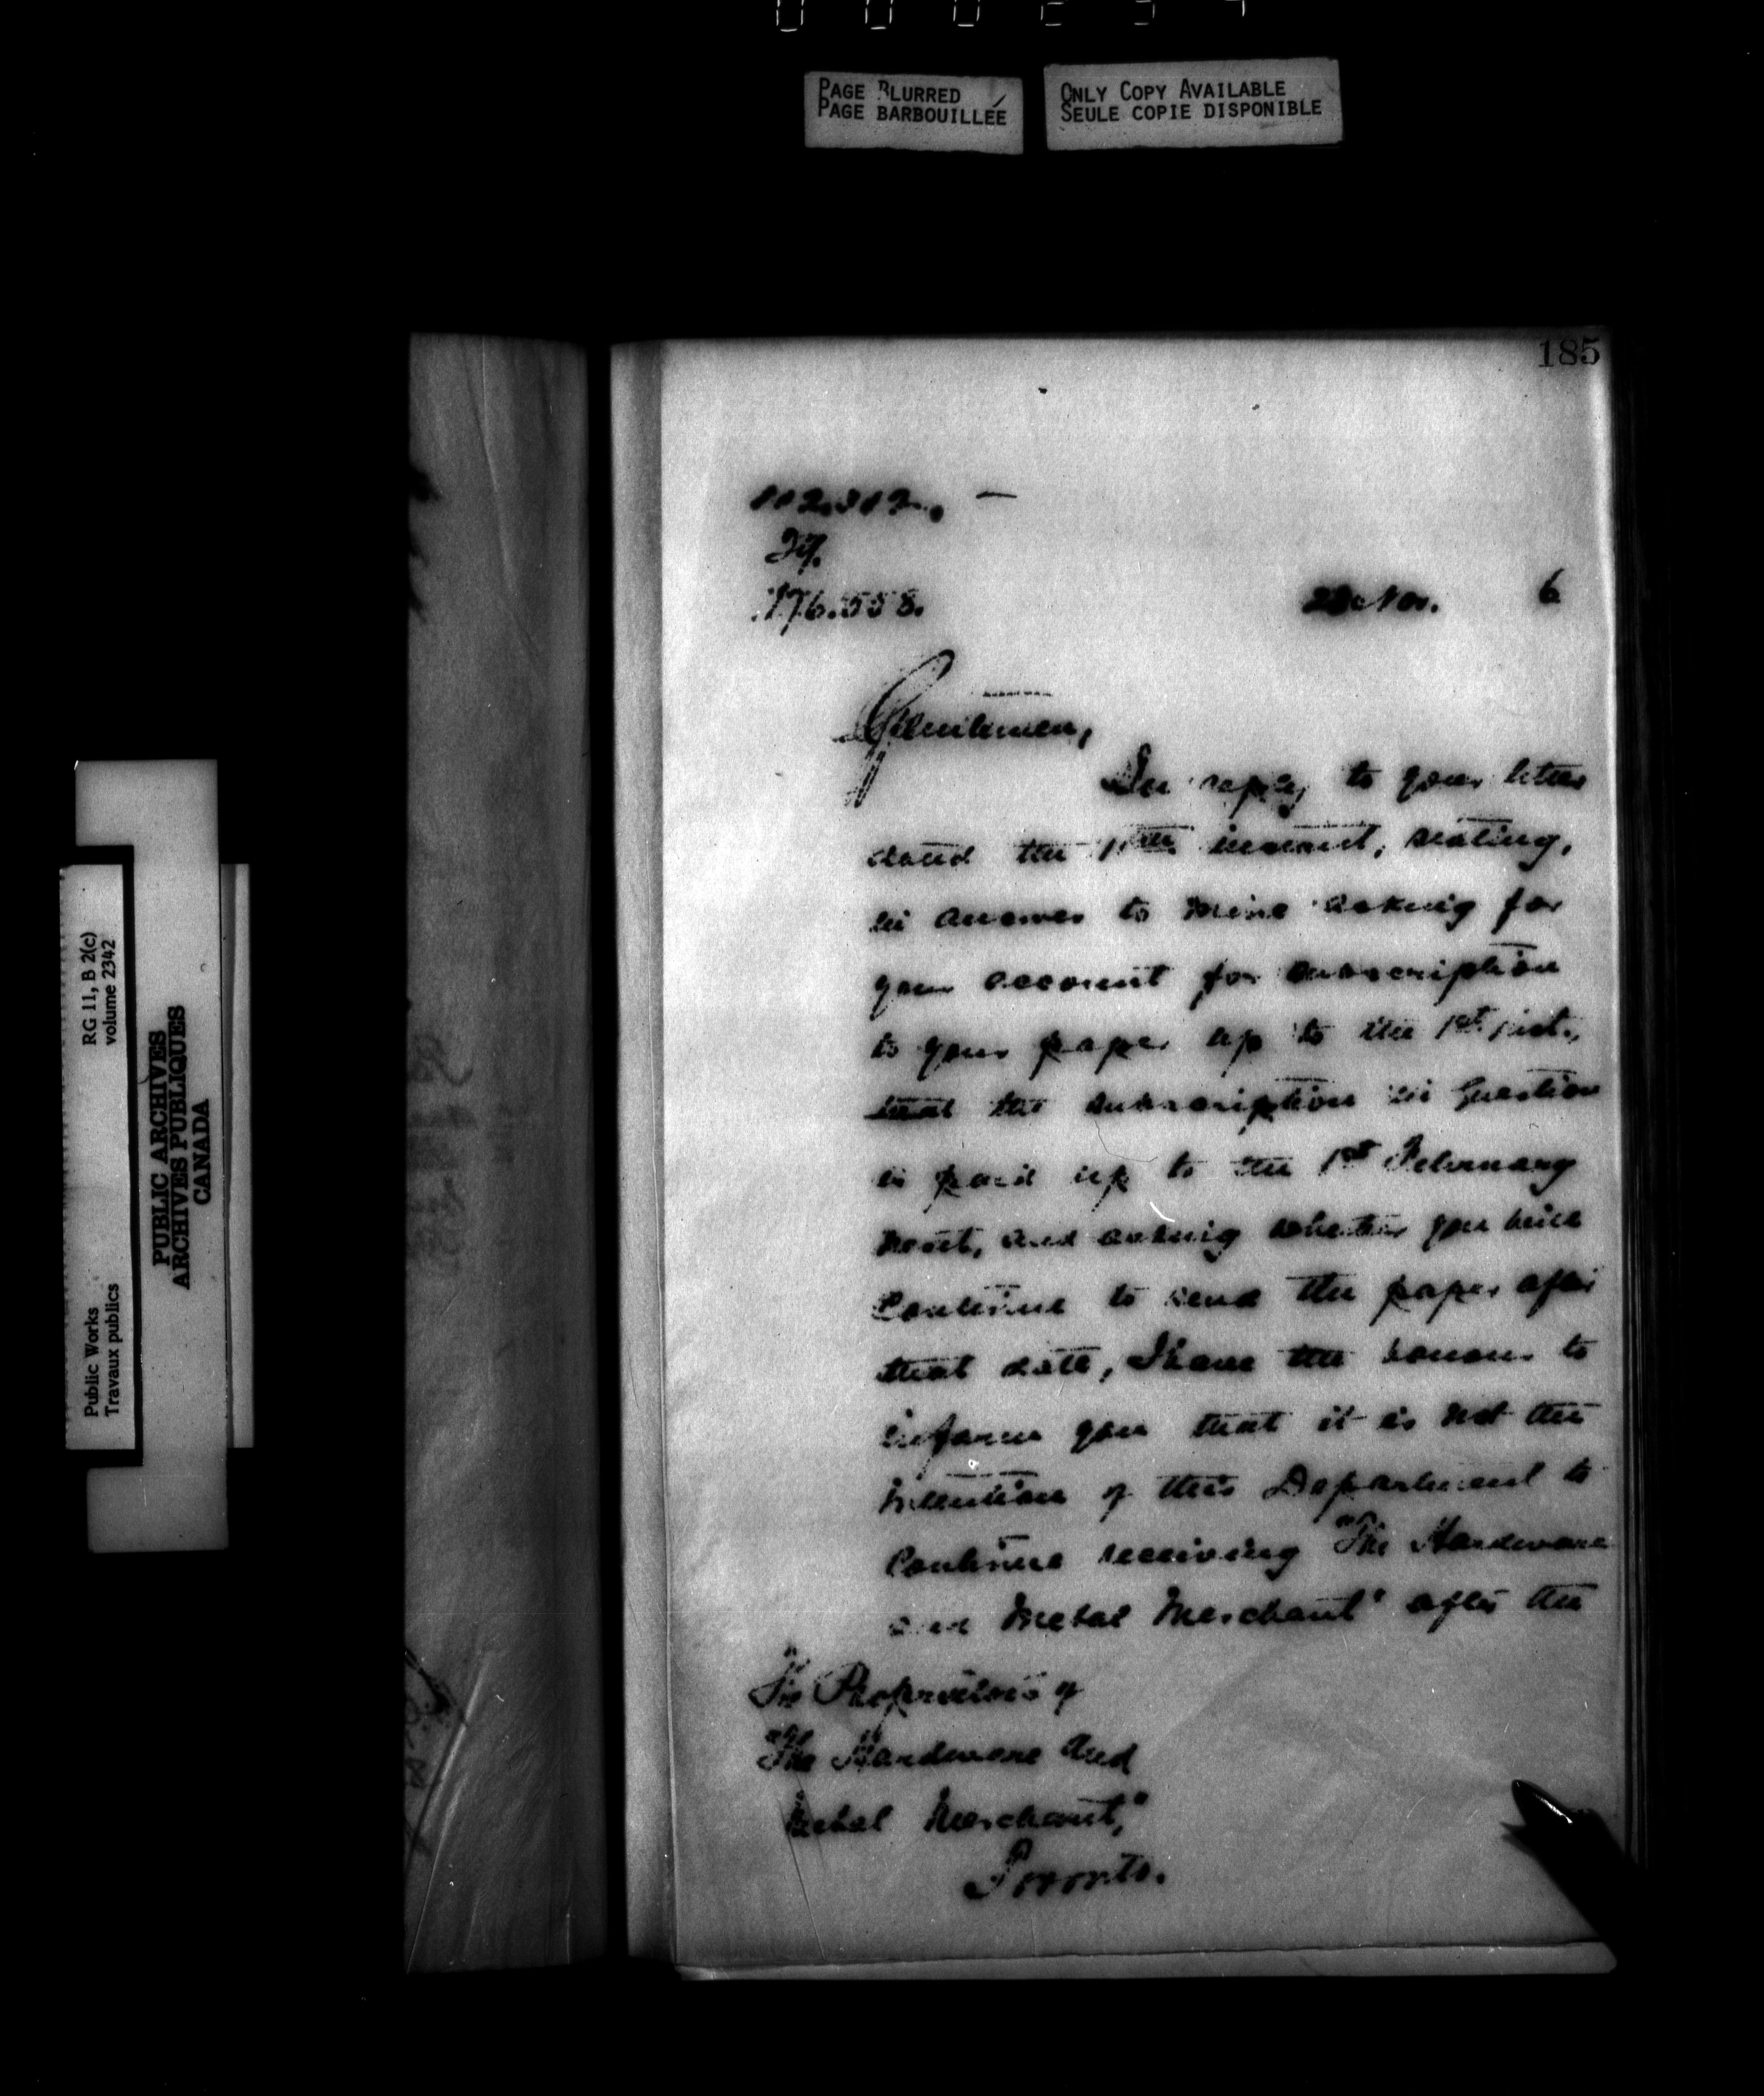 PAGE BLURRED
PAGE BARBOUILLÉE
ONLY COPY AVAILABLE
SEULE COPIE DISPONIBLE
185
176.558.
Nov. 6
Gentlemen,
In reply to your letter
dated the instant, stating,
in answer to mine asking for
your account for subscription
to your paper up to the 1st inst.,
that the subscription in question
is paid up to the 1st February
next, and asking whether you will
continue to send the paper after
that date, I have the honour to
inform you that it is not the
intention of this Department to
continue receiving "The Hardware
and Metal Merchant" after the
The Proprietors of
"The Hardware and
Metal Merchant,"
Toronto.
RG 11, B 2(c)
volume 2342
Public Works
Travaux publics
PUBLIC ARCHIVES
ARCHIVES PUBLIQUES
CANADA